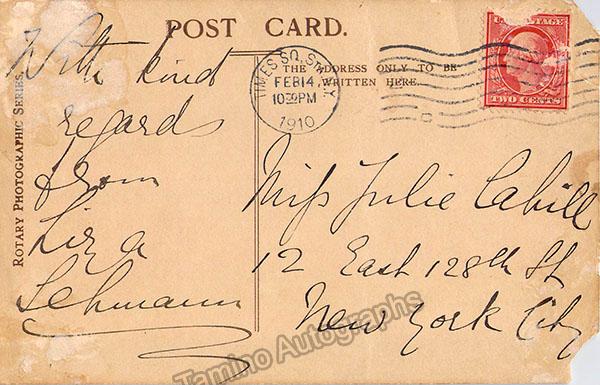 POST CARD.
THE ADDRESS ONLY TO BE
WRITTEN HERE.
TIMES SQ. STA. N.Y.
FEB 14
10 30 PM
1910
U.S. POSTAGE
TWO CENTS
ROTARY PHOTOGRAPHIC SERIES.
With kind
regards
from
Liza
Lehmann
Miss Julie Cahill
12 East 128th St
New York City
Tamino Autographs